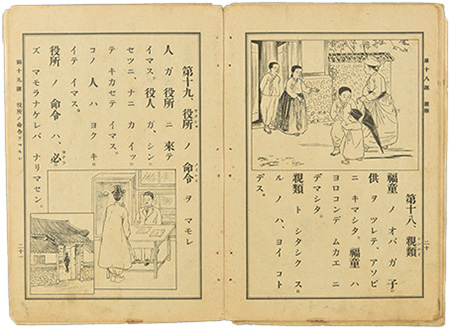 第十八課 親類
二十
第十八、親類
福童 ノ オバ ガ 子
供 ヲ ツレテ、アソビ
ニ キマシタ。福童 ハ
ヨロコンデ ムカエニ
デマシタ。
親類 ト シタシクス
ル ノ ハ、ヨイ コト
デス。
第十九、役所 ノ 命令 ヲ マモレ
人 ガ 役所 ニ 來テ
イマス。役人 ガ、シン
セツニ、ナニ カ イッ
テ キカセテ イマス。
コノ 人 ハ ヨク キ
イテ イマス。
役所 ノ 命令 ハ、必
ズ マモラナケレバ ナリマセン。
第十九課 役所ノ命令ヲマモレ
二十一